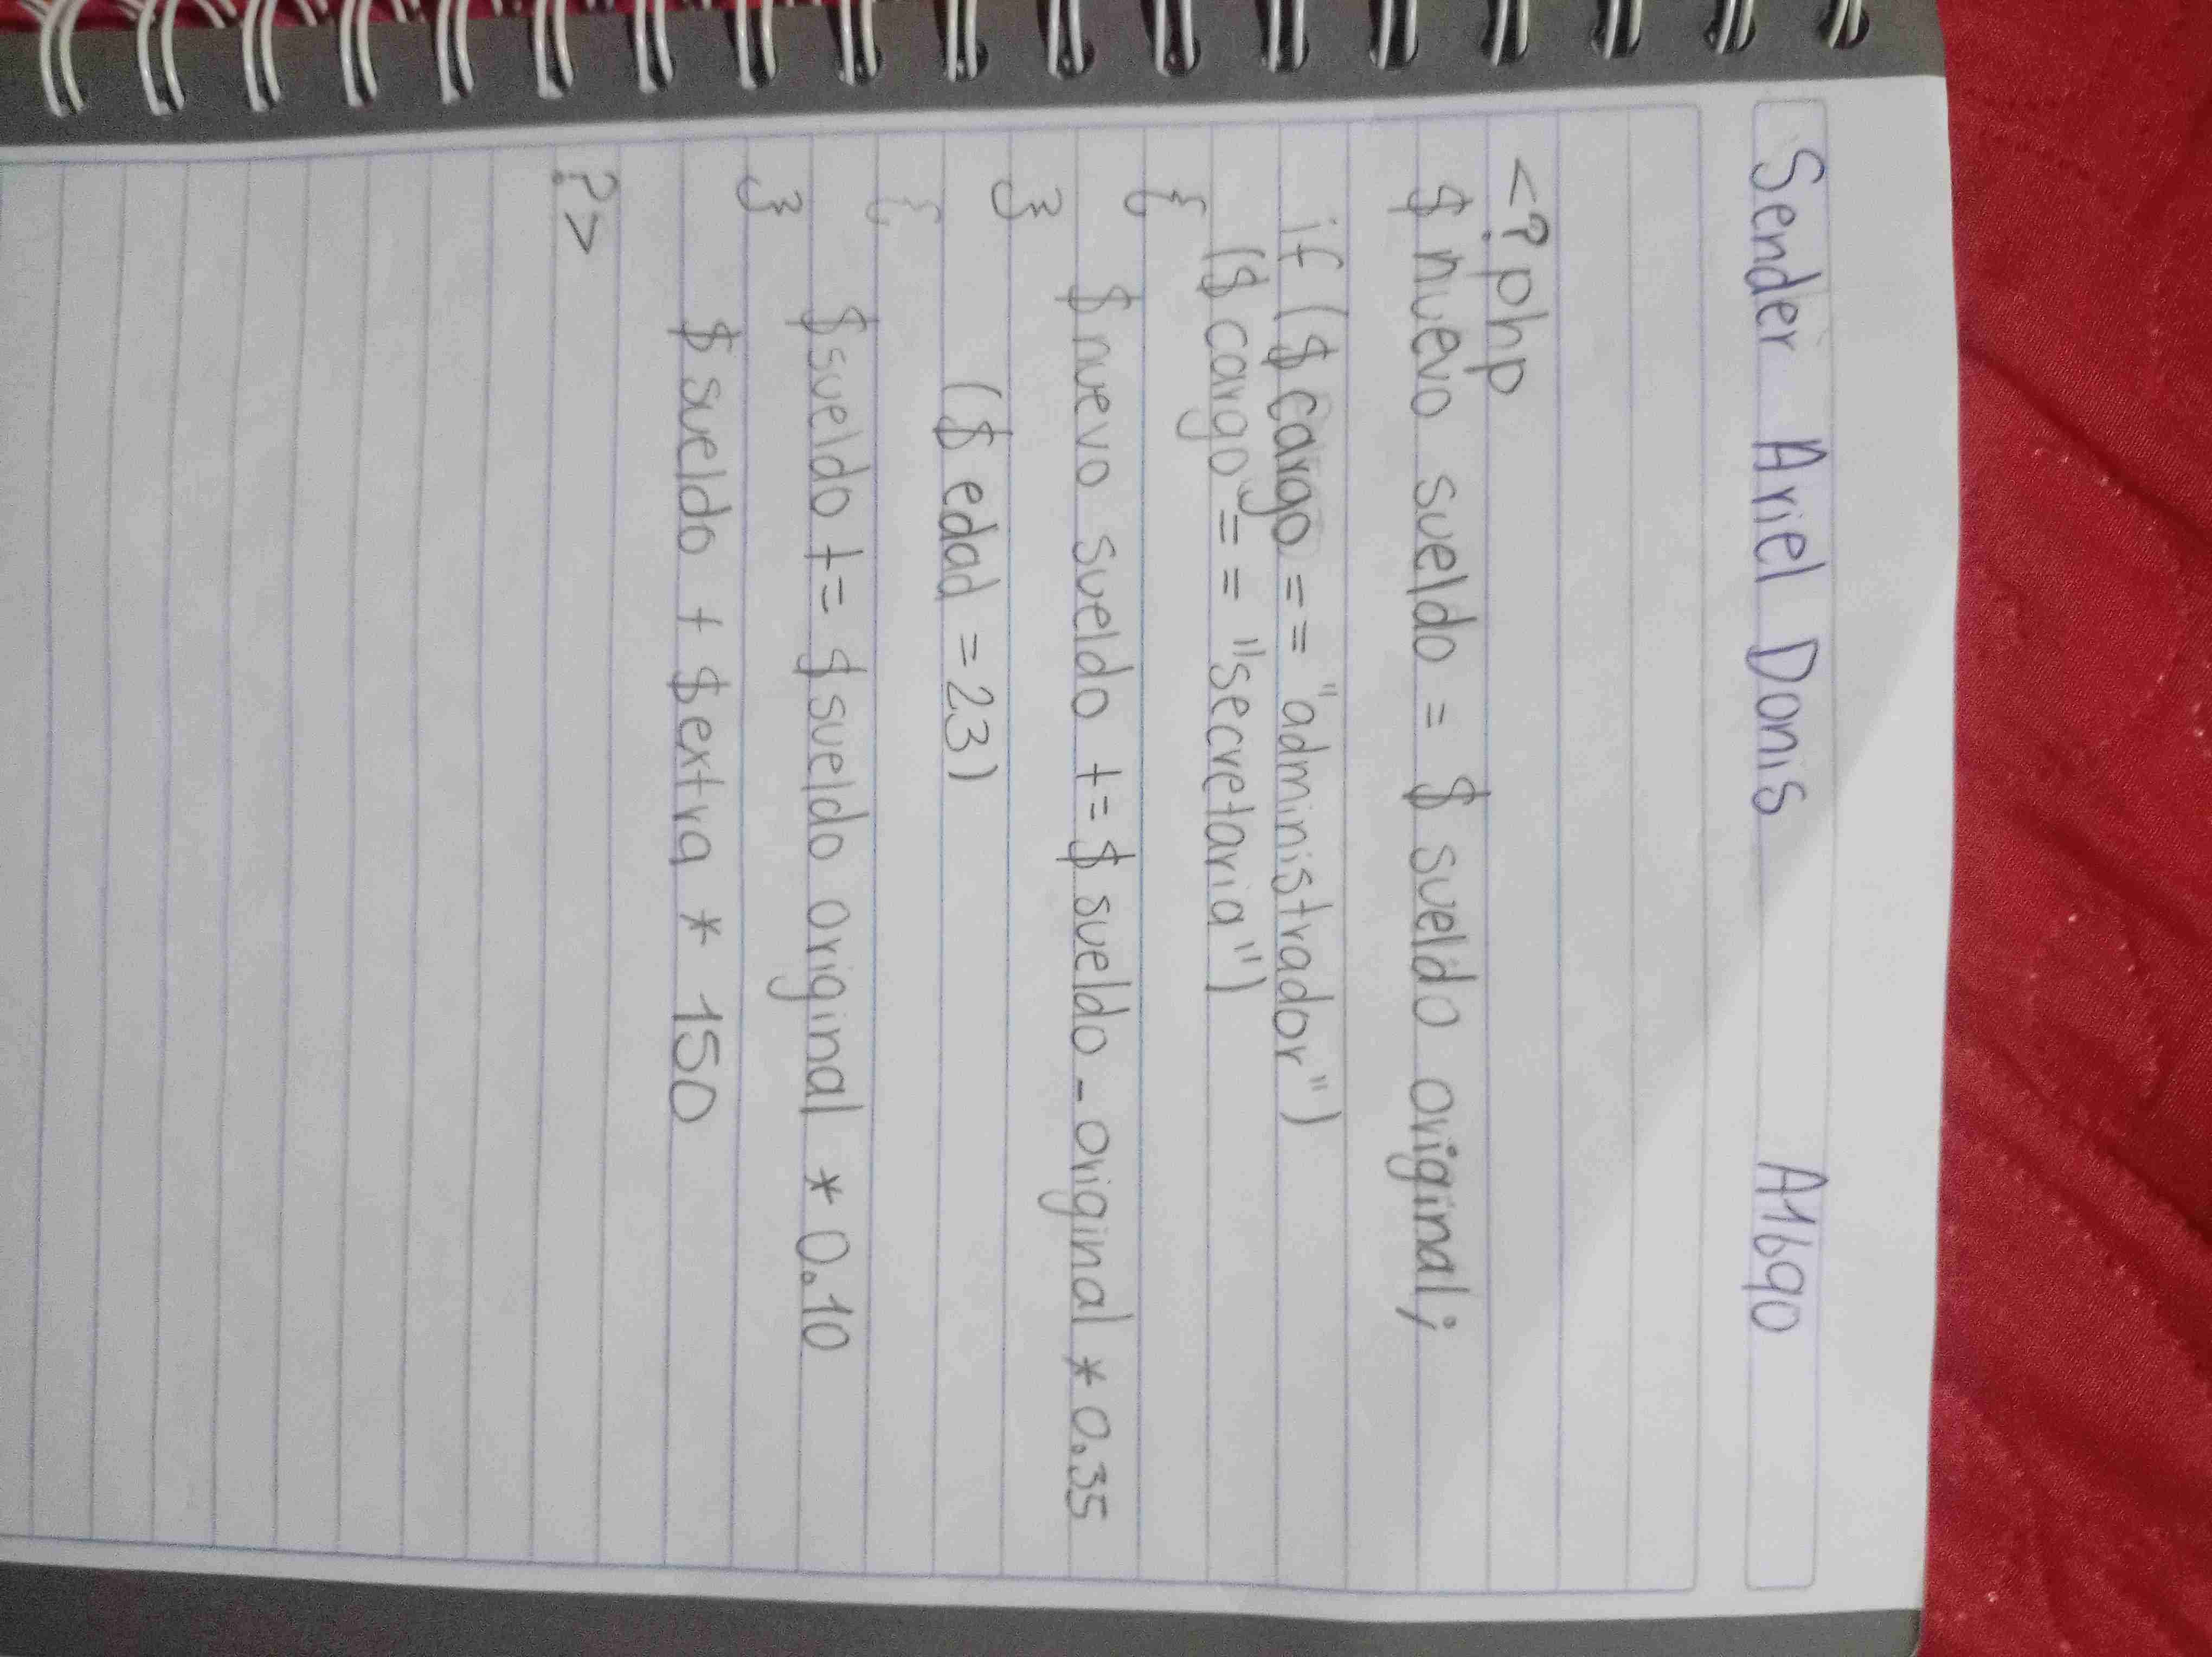 Sender Ariel Donis A1690
<?php
$ nuevo sueldo = $ sueldo original;
if ($ cargo == "administrador")
($ cargo == "secretaria")
{
$ nuevo sueldo += $ sueldo - original * 0.35
}
($ edad = 23)
{
$ sueldo += $ sueldo original * 0.10
}
$ sueldo + $ extra * 150
?>